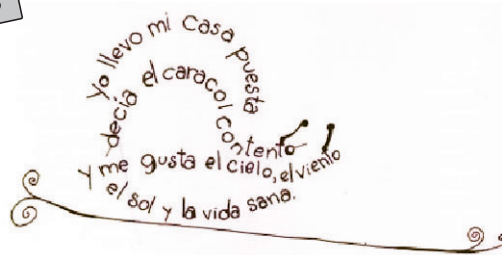 Yo llevo mi casa puesta
—decia el caracol contento—
y me gusta el cielo, el viento
el sol y la vida sana.